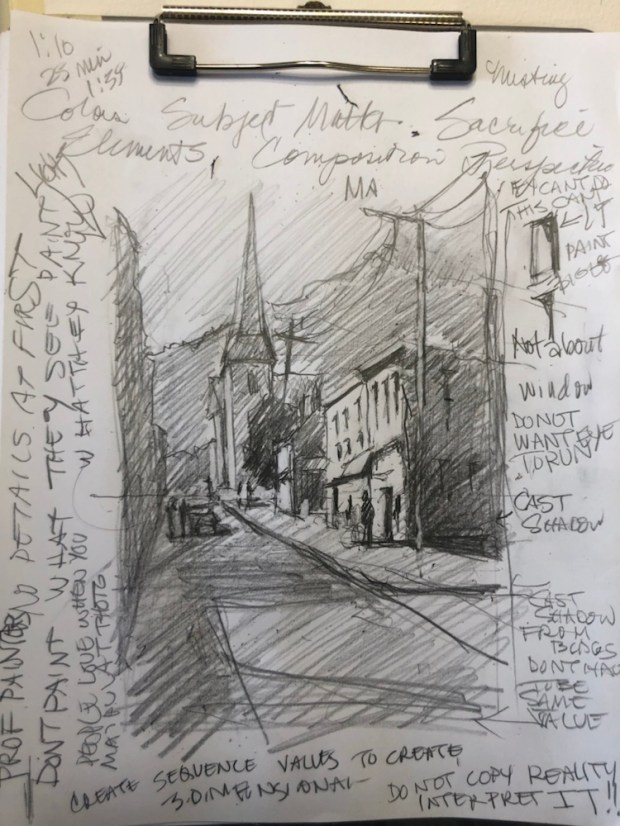 1:10
25 min
1:35
Color Subject Matter. Sacrifice
Elements Composition Perspective
MA
THIS CANT
PAINT
Not about
window
DO NOT
WANT EYE
TO RUN
CAST
SHADOW
CAST
SHADOW
FROM
BLDGS
DONT HAVE
TO BE
SAME
VALUE
PROF PAINTER NO DETAILS AT FIRST
DONT PAINT WHAT THEY SEE PAINT
WHAT THEY KNOW
PEOPLE LOVE WHEN YOU
CREATE SEQUENCE VALUES TO CREATE
3-DIMENSIONAL
DO NOT COPY REALITY
INTERPRET IT!!